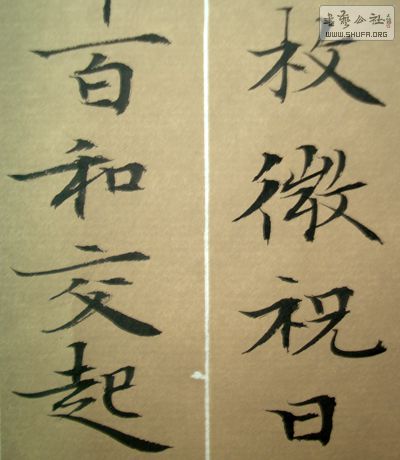 書藝公社
WWW.SHUFA.ORG
枚微祝日
百和交起